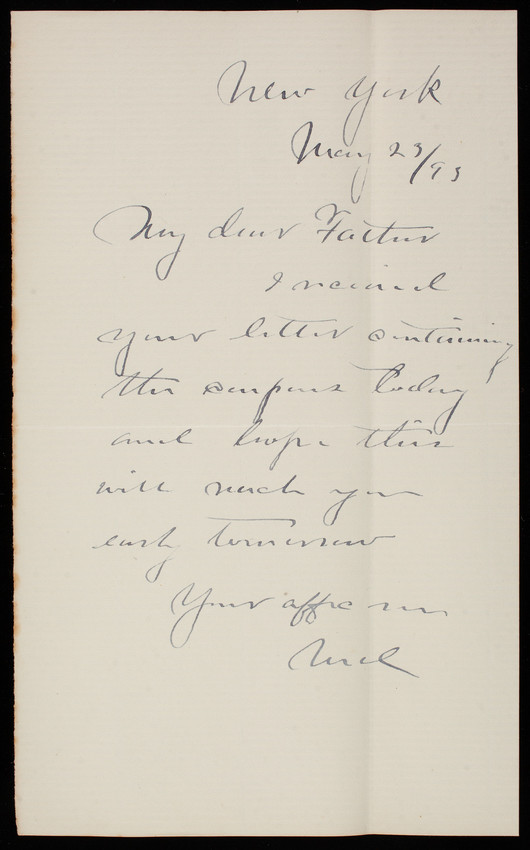 New York
May 23/93
My dear Father
I received
your letter containing
the coupons today
and hope this
will reach you
early tomorrow
Your affec son